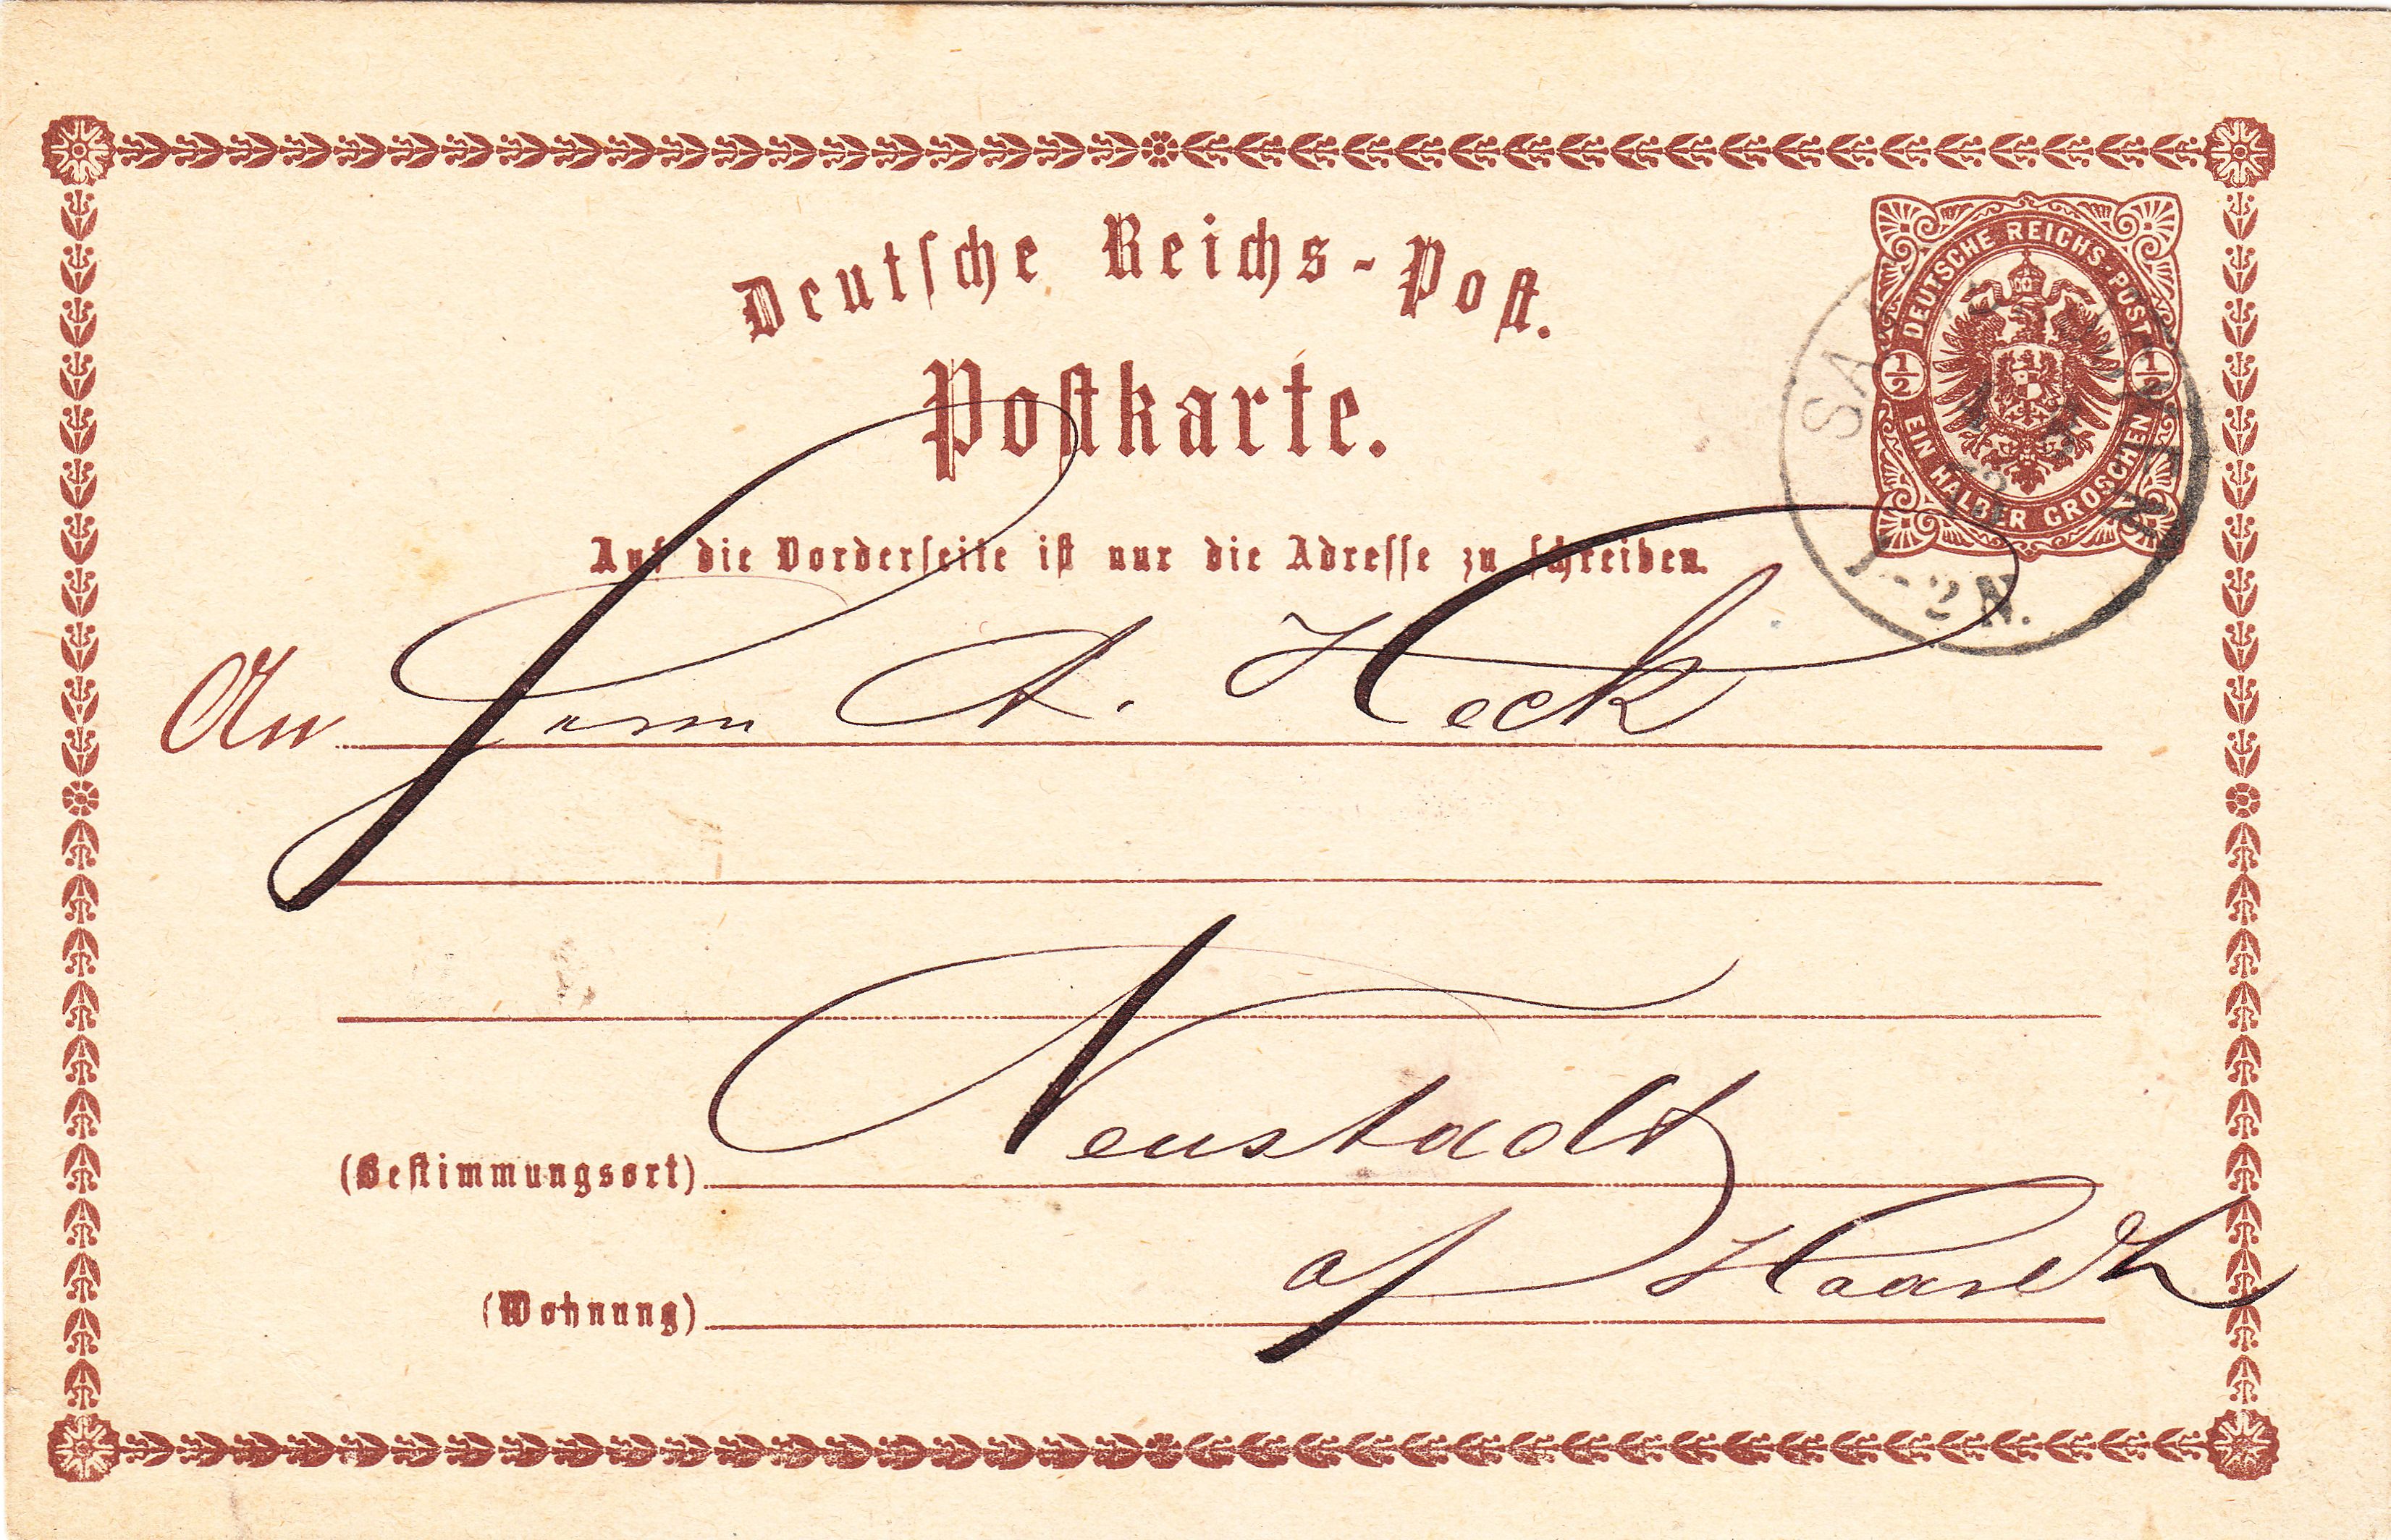 Deutsche Reichs-Post.
Postkarte.
DEUTSCHE REICHS-POST
1/2 1/2
EIN HALBER GROSCHEN
1-2 N.
Auf die Vorderseite ist nur die Adresse zu schreiben.
An Herrn A. Heck
(Bestimmungsort) Neustadt
(Wohnung) a/ Haardt